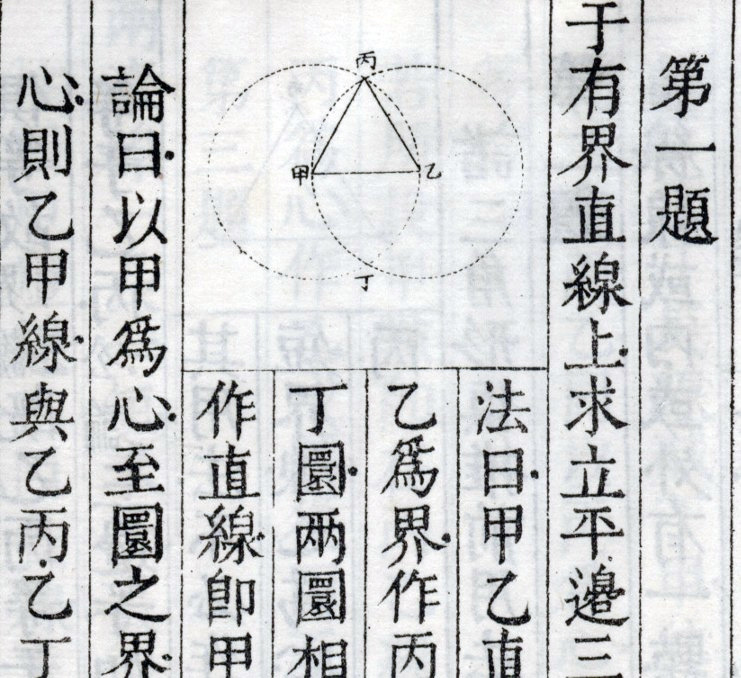 第一題
于有界直線上求立平邊三
法曰甲乙直
乙爲界作丙
丁圜兩圜相
作直線卽甲
丙
甲
乙
丁
論曰以甲爲心至圜之界
心則乙甲線與乙丙乙丁